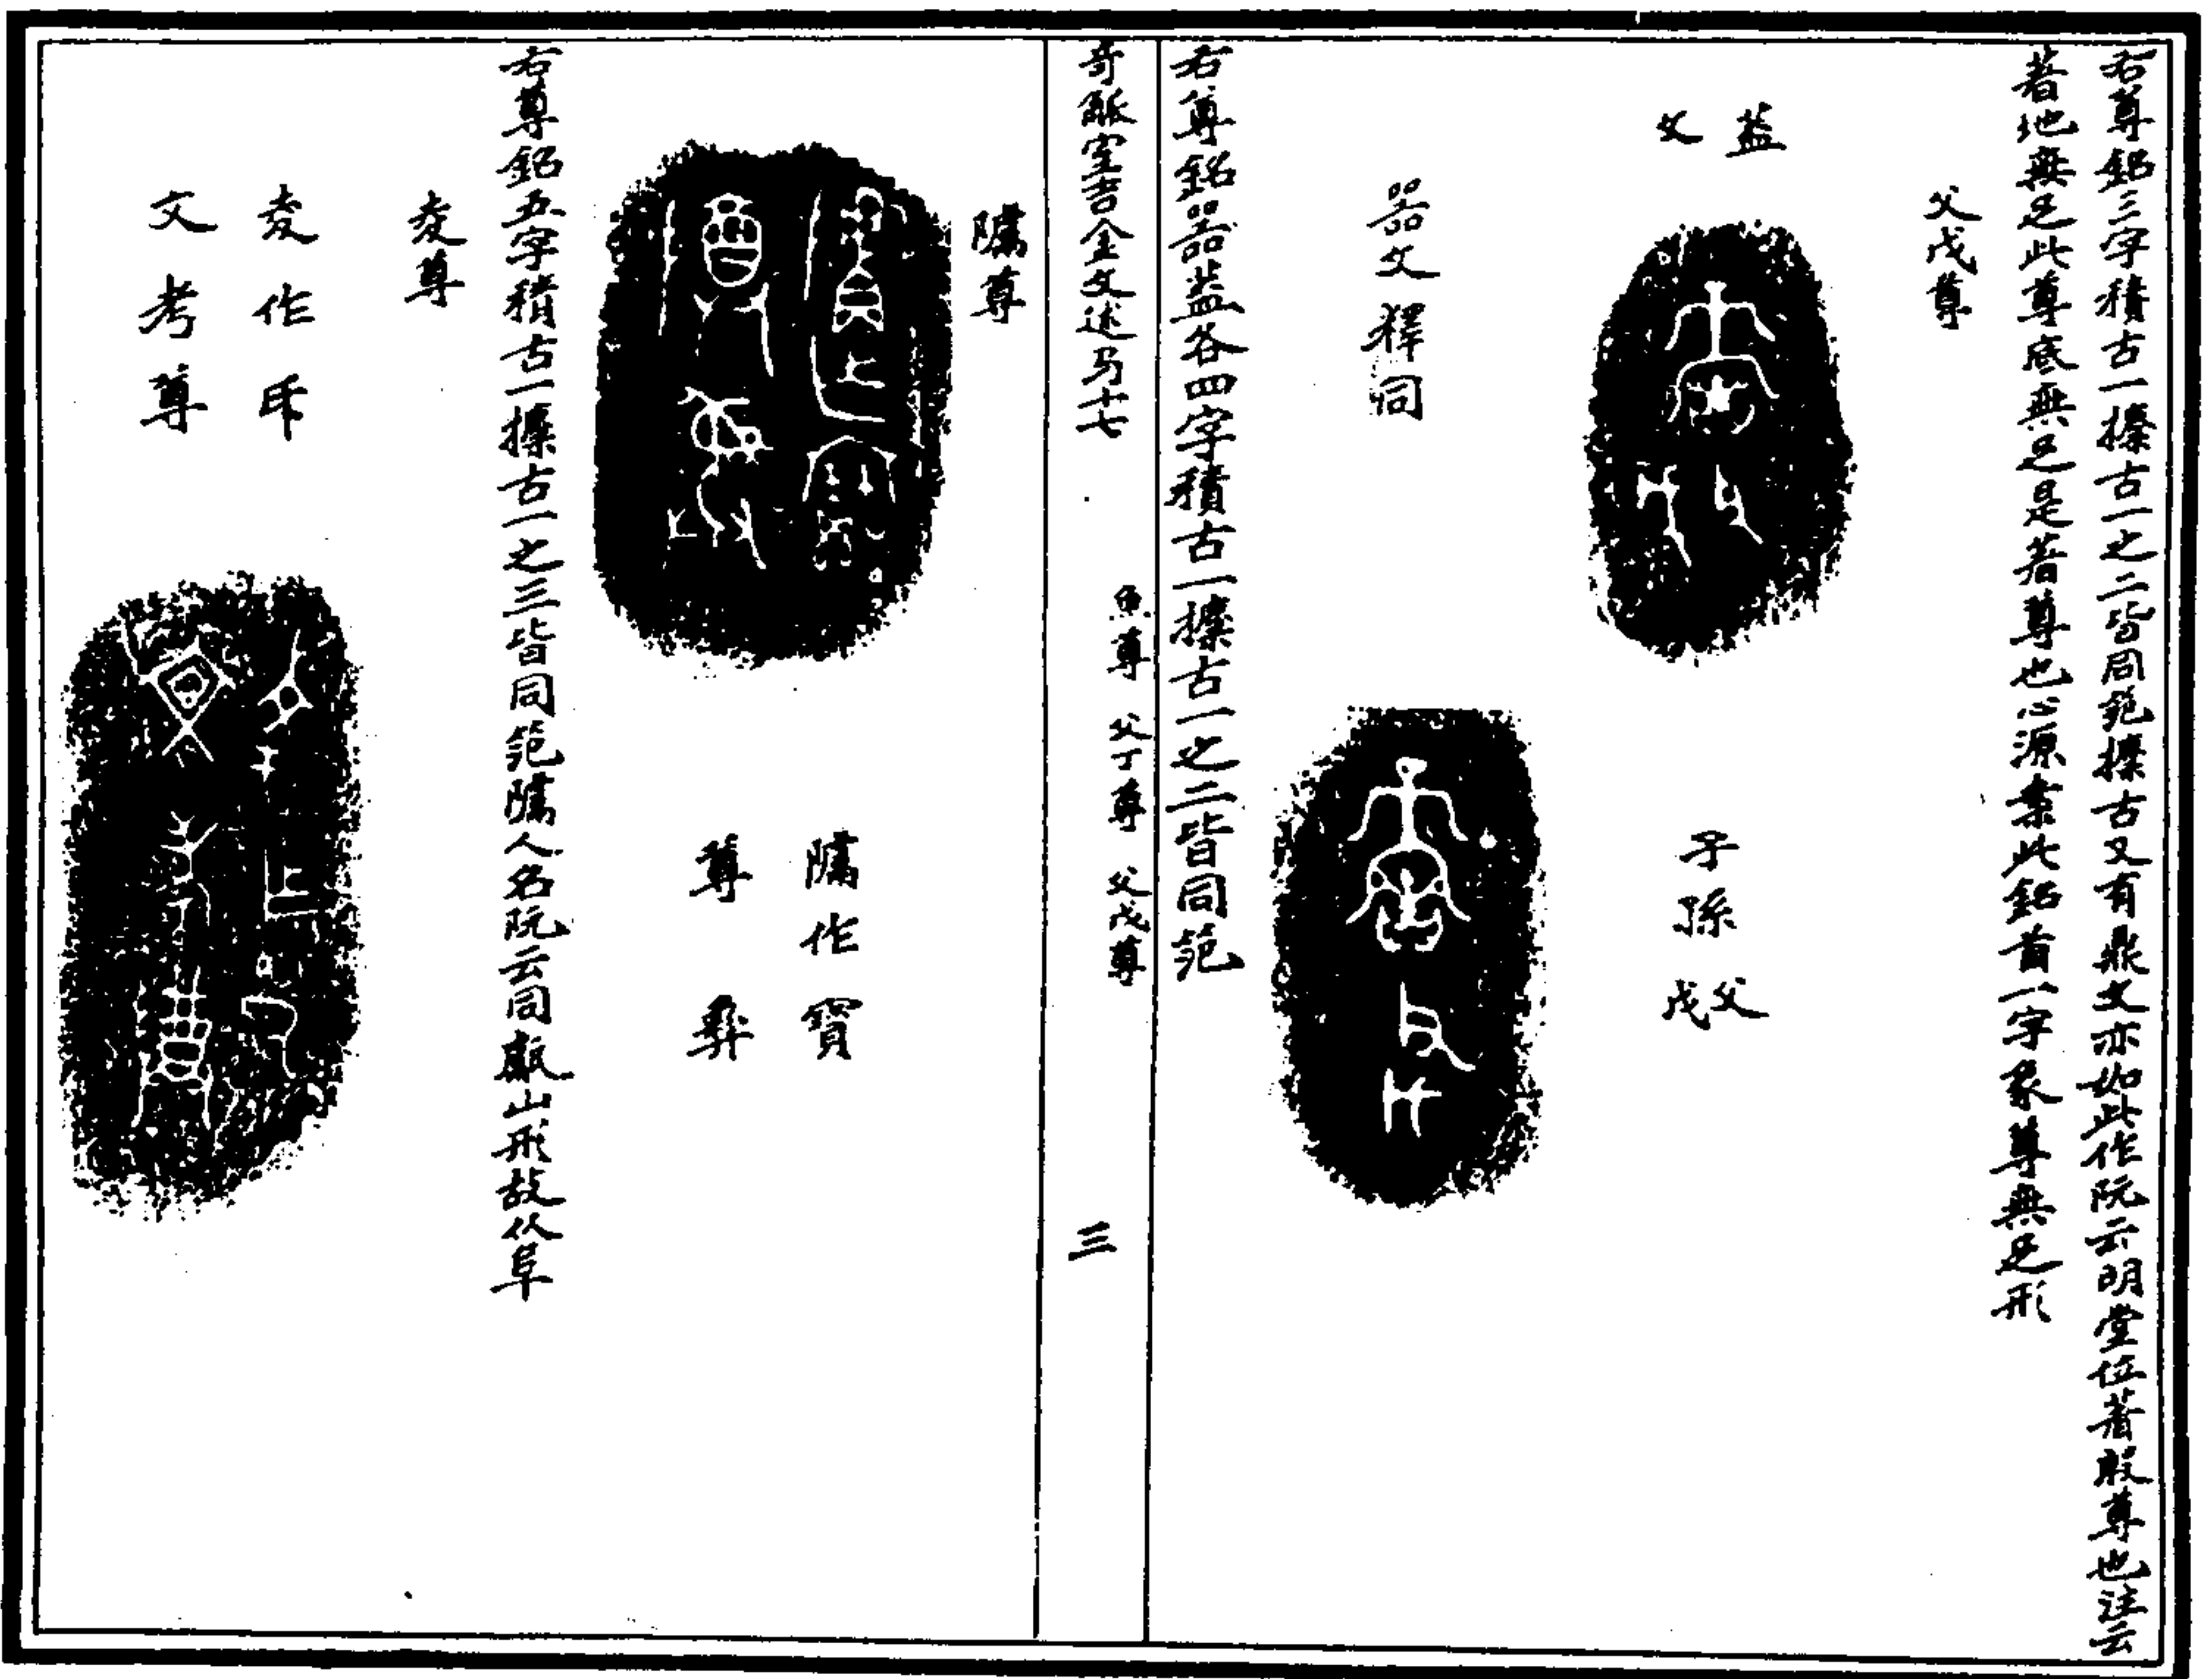 右尊銘三字積古一攈古一之二皆同笵攈古又有鼎文亦如此作阮云明堂位著殷尊也注云
著地無足此尊底無足是著尊也心源案此銘首一字象尊無足形
父戊尊
蓋
文
子孫父
戊
器文釋同
右尊銘器蓋各四字積古一攈古一之二皆同笵
奇觚室吉金文述弓十七
魚尊 父丁尊 父戊尊
三
隯尊
隯作寶
尊彝
右尊銘五字積古一攈古一之三皆同笵隯人名阮云同巘山形故从阜
夌尊
夌作氒
文考尊